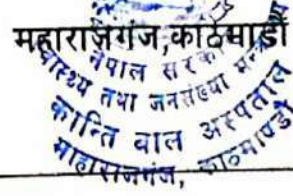 महाराजगंज,काठमाडौं
नेपाल सरकार
स्वास्थ्य तथा जनसंख्या
कान्ति बाल अस्पताल
माहाराजगंज, काठमाण्डौ